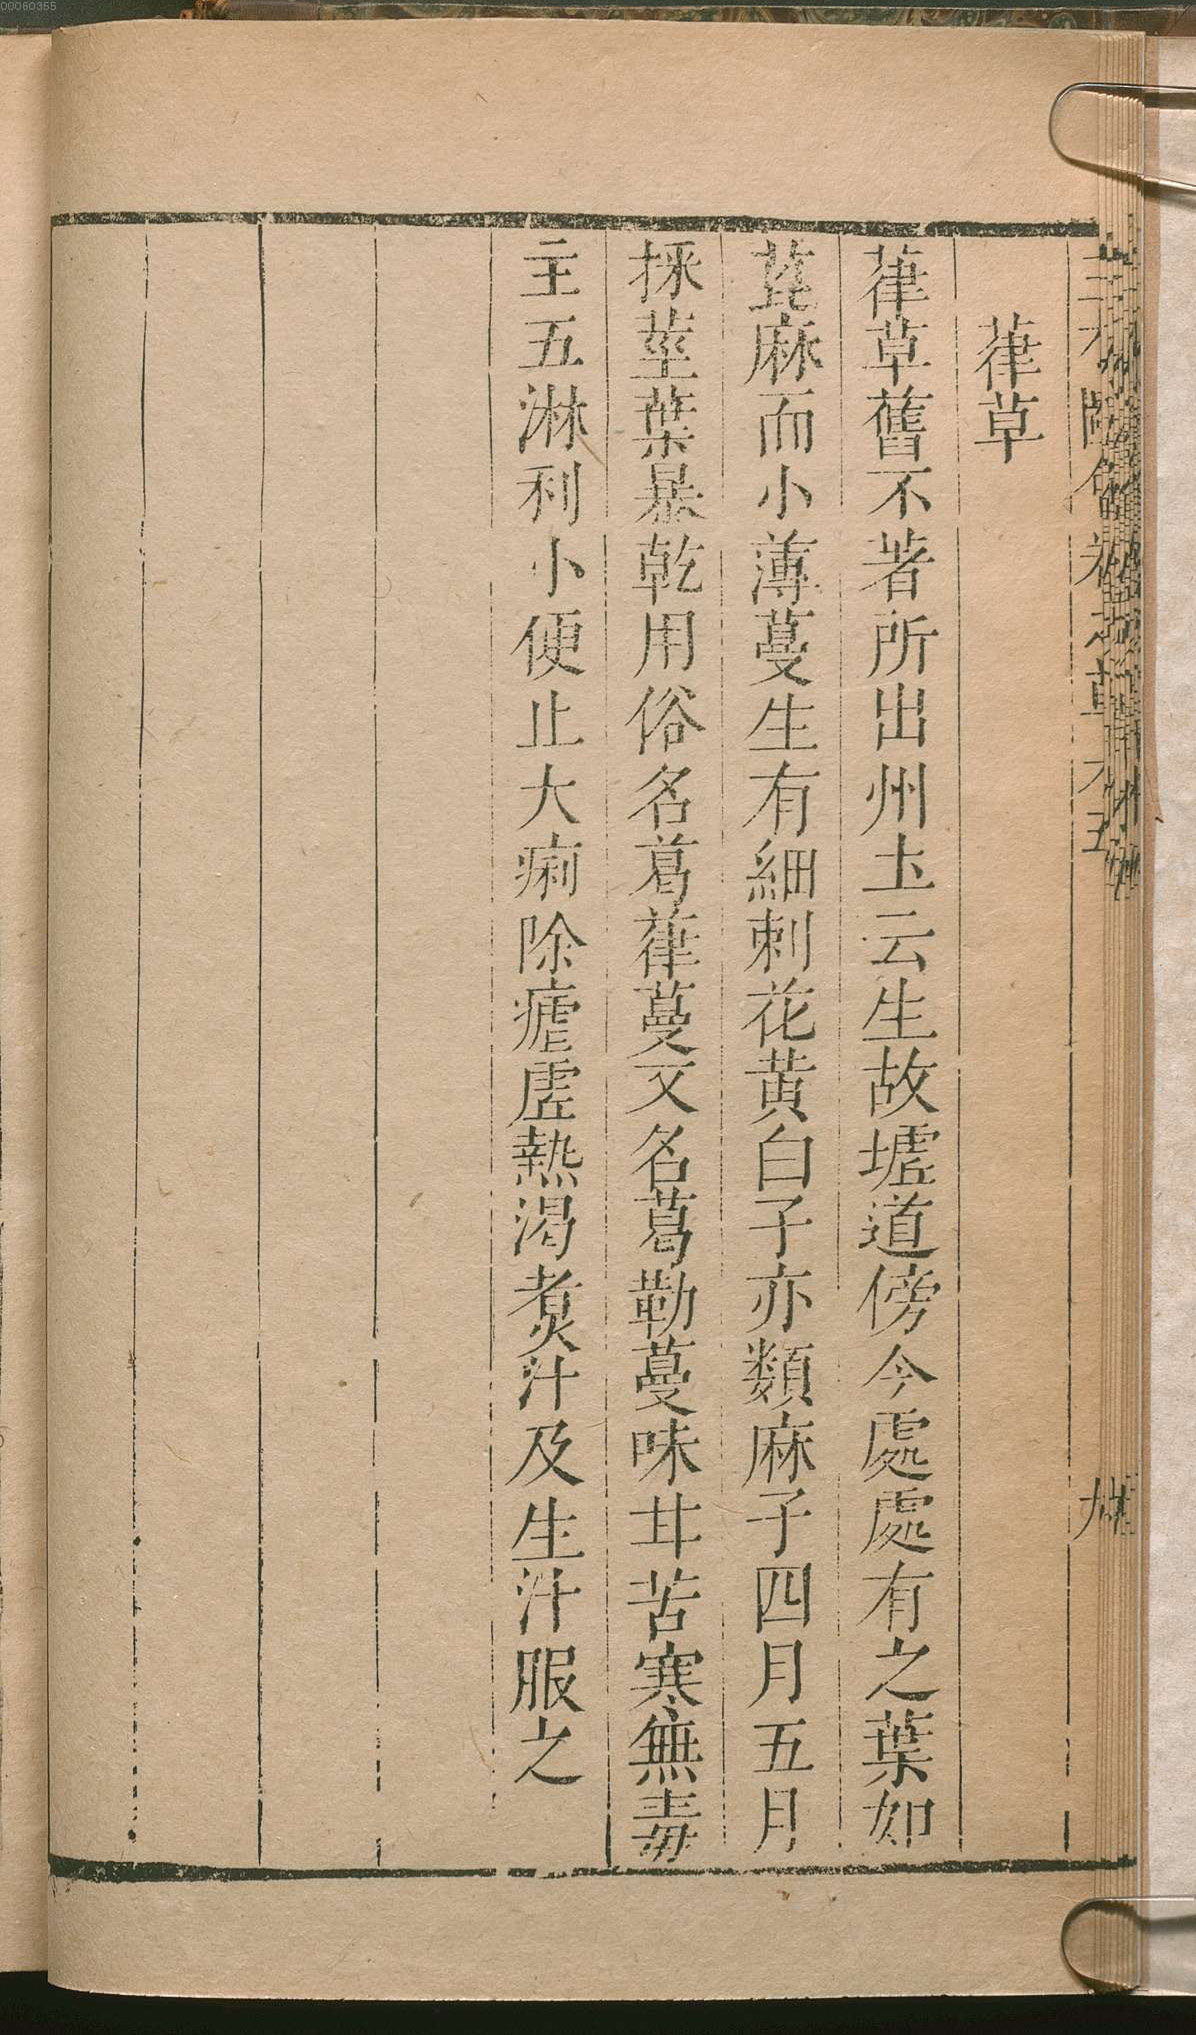 00060355
葎草
葎草舊不著所出州土云生故墟道傍今處處有之葉如
萆麻而小薄蔓生有細刺花黄白子亦類麻子四月五月
採莖葉暴乾用俗名葛葎蔓又名葛勒蔓味甘苦寒無毒
主五淋利小便止大痢除瘧虚熱渴煮汁及生汁服之